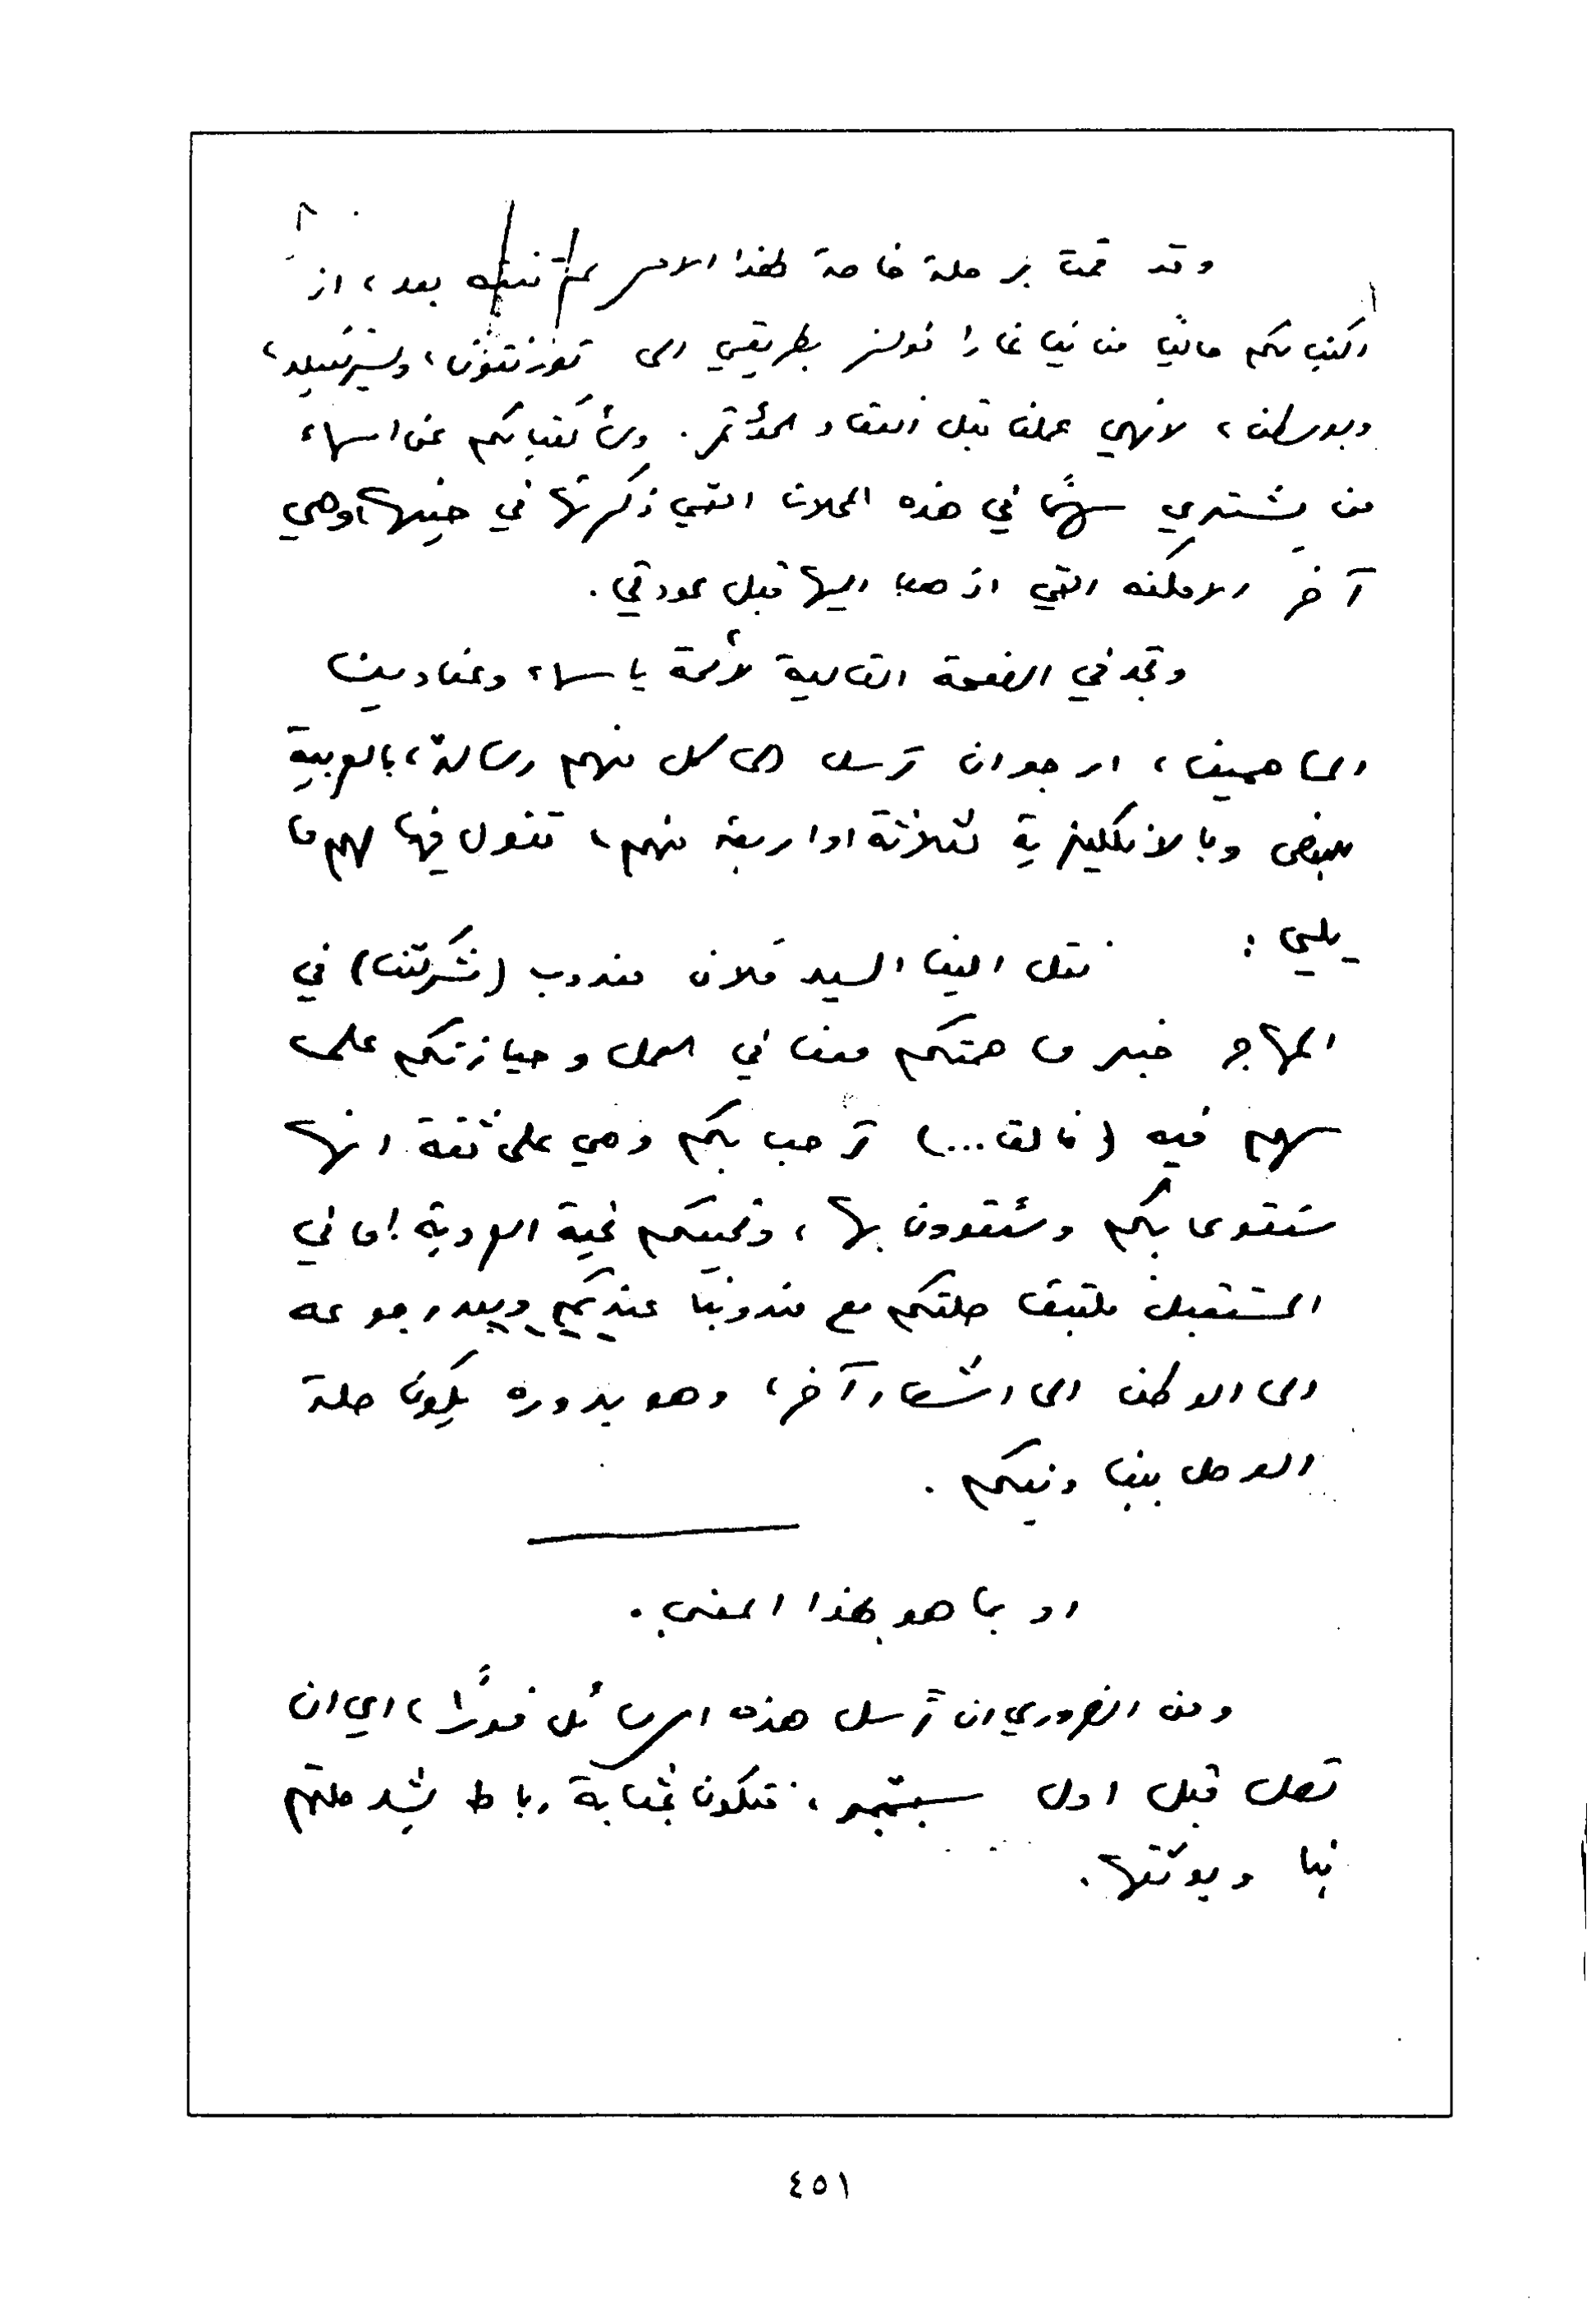 ٨
وقد قمت برحلة خاصة لهذا الامر لم تنته بعد، اذ
اكتب لكم حاليًا من نياغارا فولز بطريقي الى تورنتون، وسبرنغفيلد،
وبوسطن، لانهي عملنا قبل انعقاد المؤتمر. وسأكتب لكم عن اسماء
من يشتري سهمًا في هذه المحلات التي ذكرتها في حينها، وهي
آخر الامكنه التي اذهب اليها قبل عودتي.
وتجد في الصفحة التالية لائحة باسماء وعناوين
المساهمين، ارجو ان ترسل الى كل منهم رسالة، بالعربية
للبعض وبالانكليزية لثلاثة او اربعة منهم، تقول فيها لهم ما
يلي:
نقل الينا السيد فلان مندوب (شركتنا) في
المهاجر خبر مساهمتكم معنا في العمل وحيازتكم على
سهم فيه (فالـ...) ترحب بكم وهي على ثقة انها
ستقوى بكم وستقوون بها، وتحييكم تحية العروبة! اما في
المستقبل فلتبق صلتكم مع مندوبنا عنديكم وبعد رجوعه
الى الوطن الى اشعار آخر، وهو بدوره يكون صلة
الوصل بيننا وبينكم.
او بما هو بهذا المعنى.
ومن الضروري ان ترسل هذه الرسائل فورًا، اي ان
تصل قبل اول سبتمبر، فتكون بمثابة رباط يشد صلتهم
بنا ويوثقها.
٤٥١